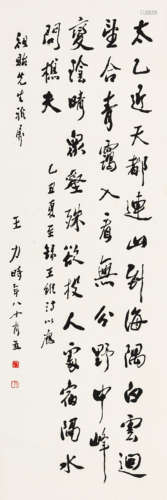 太乙近天都連山到海隅白雲迴
望合青靄入看無分野中峰
變陰晴眾壑殊欲投人處宿隔水
問樵夫 乙丑夏至録王維詩以應
貽先生雅屬
王力時年八十有五